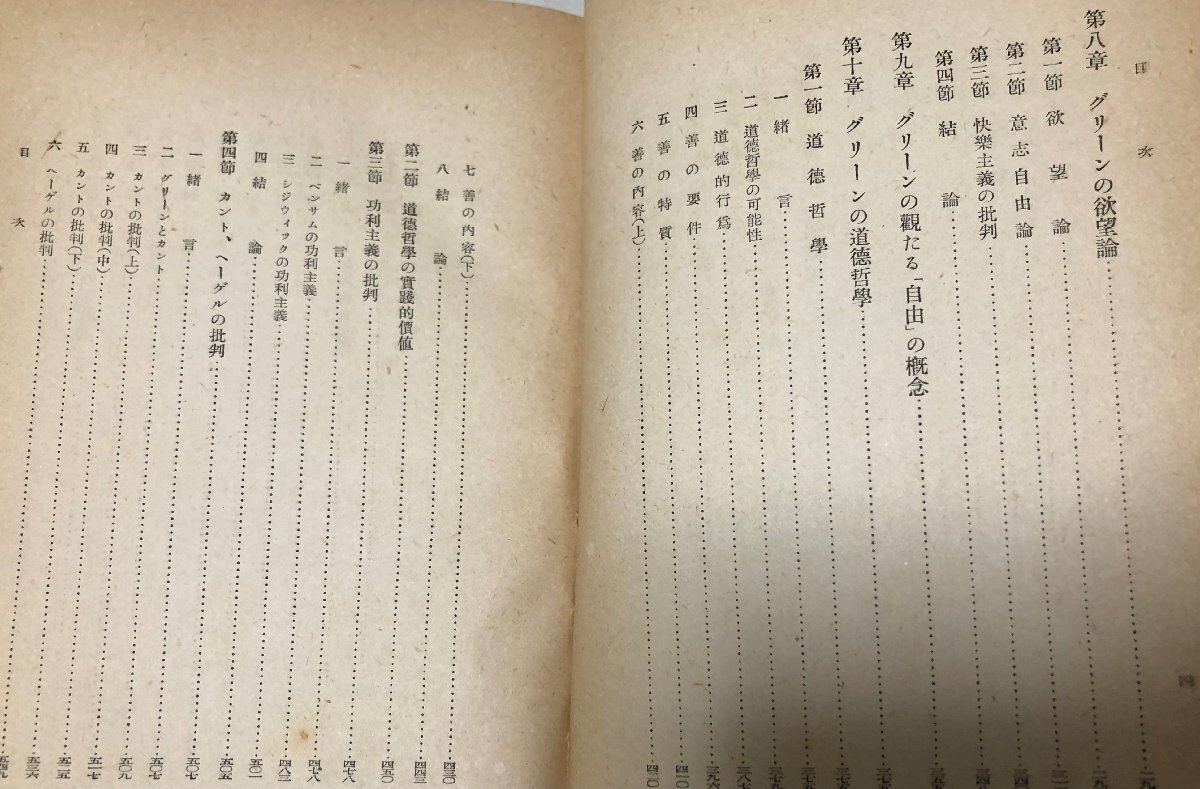 目次
四
第八章 グリーンの欲望論
第一節 欲望論
第二節 意志自由論
第三節 快樂主義の批判
第四節 結論
第九章 グリーンの觀たる「自由」の概念
第十章 グリーンの道德哲學
第一節 道德哲學
一 緒言
二 道德哲學の可能性
三 道德的行爲
四 善の要件 四一〇
五 善の特質
六 善の內容(上) 四二〇
七 善の內容(下) 四三〇
八 結論 四四三
第二節 道德哲學の實踐的價値 四五〇
第三節 功利主義の批判
一 緒言 四七八
二 ベンサムの功利主義 四七八
三 シジウィックの功利主義 四八三
四 結論 五〇一
第四節 カント、ヘーゲルの批判 五〇五
一 緒言 五〇七
二 グリーンとカント 五〇七
三 カントの批判(上) 五〇九
四 カントの批判(中) 五一七
五 カントの批判(下) 五二五
六 ヘーゲルの批判 五三六
目次